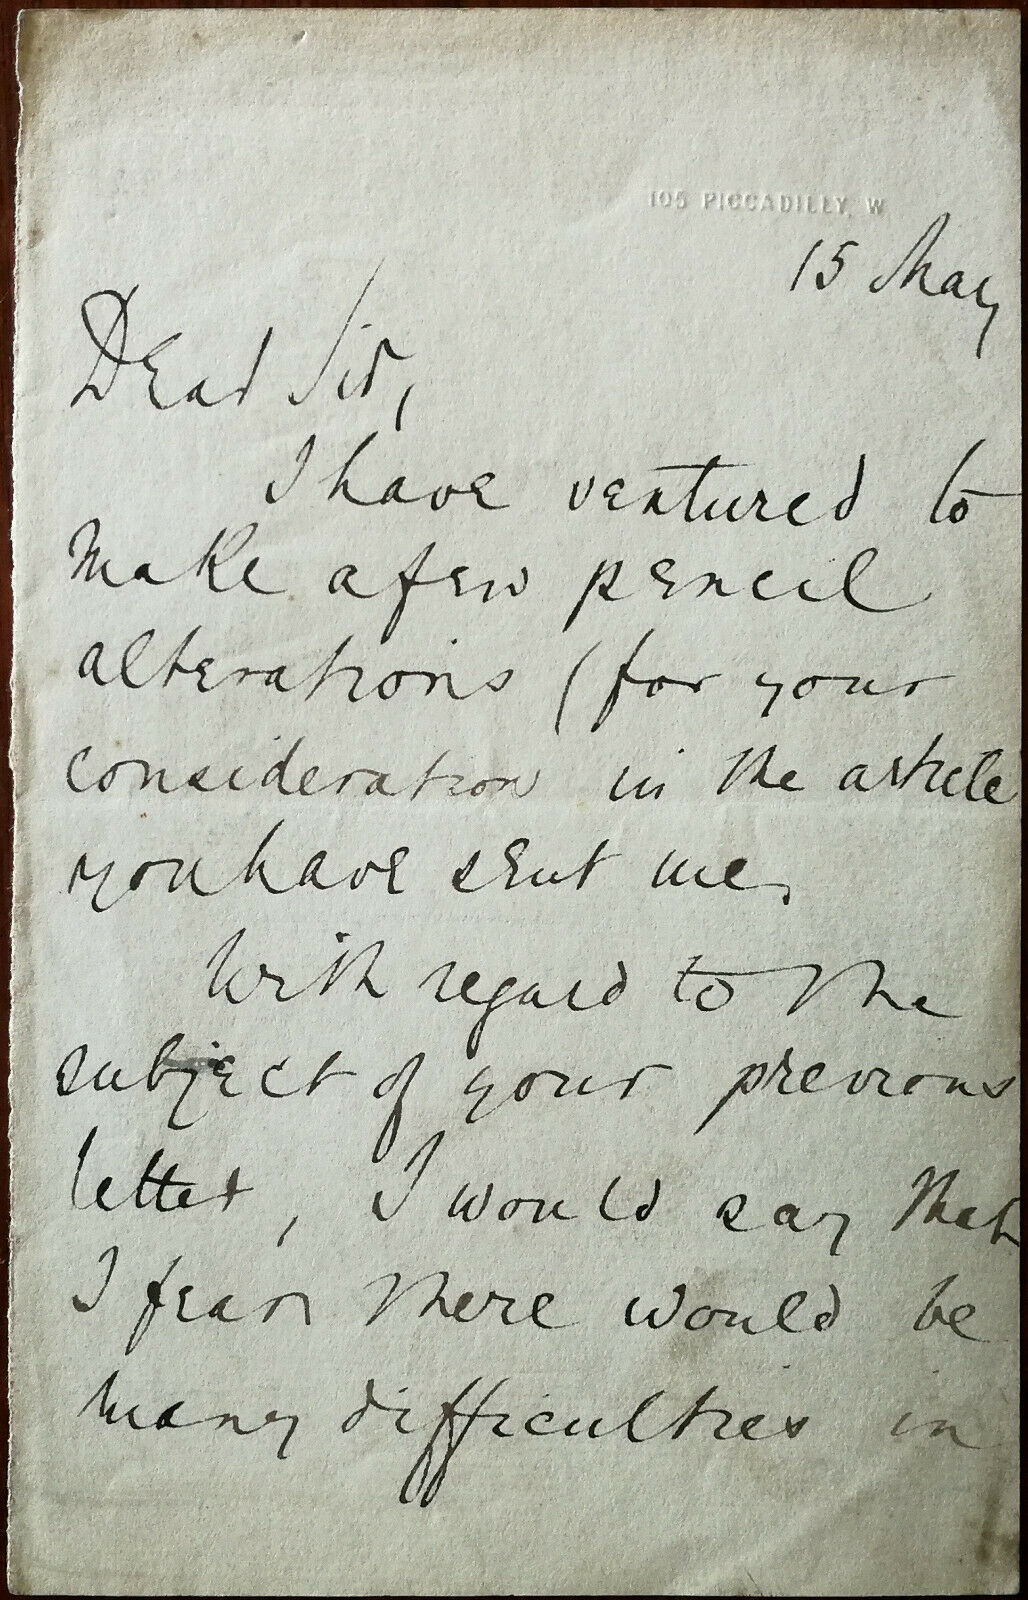 105 PICCADILLY, W
15 May
Dear Sir,
I have ventured to
make a few pencil
alterations (for your
consideration in the article
you have sent me.
With regard to the
subject of your previous
letter, I would say that
I fear there would be
many difficulties in